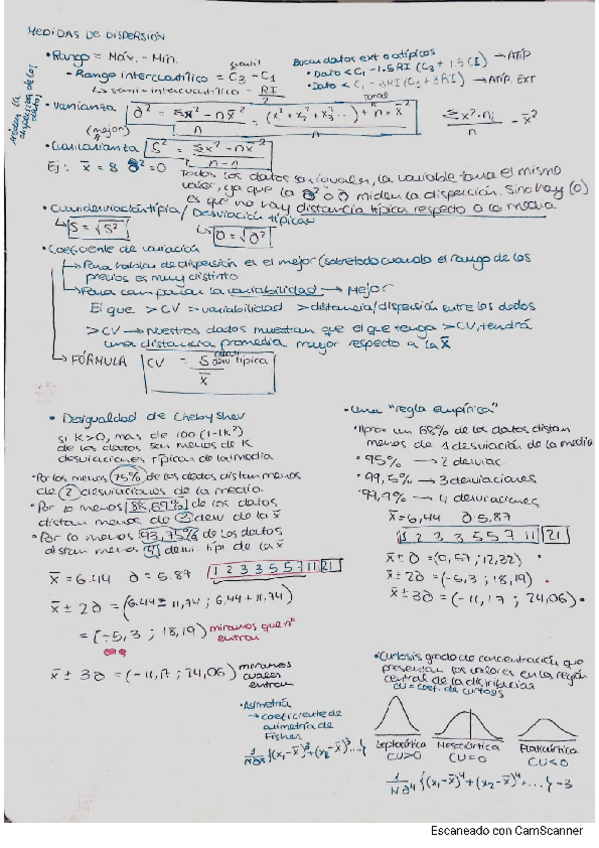 MEDIDAS DE DISPERSIÓN
Miden la dispersión de los datos
• Rango = Máx. - Mín.
- Rango intercuartílico = C3 - C1
↳ semi-intercuartílico - RI/2
Buscar datos ext o atípicos
• Dato < C1 - 1.5RI (C3 + 1.5 CI) → ATÍP
• Dato < C1 - 3RI (C3 + 3RI) → ATÍP. EXT
• Varianza ∂² = Σx² - nx̄² / n = (x² + x2² + x3² ...) + n · x̄² / n
Σx²·ni / n - x̄²
(mejor)
• Cuasivarianza S² = Σx² - nx̄² / n - n
Ej: x̄ = 8 ∂² = 0
Todos los datos son iguales, la variable toma el mismo
valor, ya que la ∂² o ∂ miden la dispersión. Si no hay (0)
es que no hay distancia típica respecto a la media
• Cuasidesviación típica / Desviación típica
↳ S = √S² ↳ ∂ = √∂²
• Coeficiente de variación
→ Para hablar de dispersión es el mejor (sobretodo cuando el rango de los
precios es muy distinto
→ Para comparar la variabilidad → Mejor
El que > CV = variabilidad > distancia/dispersión entre los dados
> CV → Nuestros dados muestran que el que tenga > CV, tendrá
una distancia promedia mayor respecto a la x̄
→ FÓRMULA CV = S desv típica / x̄
• Desigualdad de Chebyshev
si K>0, mas de 100 (1-1k²)
de los datos son menos de K
desviaciones típicas de la media
• Por los menos 75% de los datos distan menos
de 2 desviaciones de la media.
• Por lo menos 88,89% de los datos
distan menos de 2 desv de la x̄
• Por lo menos 93,75% de los datos
distan menos 4 desv tip de la x̄
x̄ = 6.44 ∂ = 5.87 1 2 3 3 5 5 7 11 21
x̄ ± 2∂ = (6.44 ± 11,74 ; 6,44 + 11,74)
= (-5,3 ; 18,19) miramos que nº
entran
x̄ ± 3∂ = (-11,17 ; 24,06) miramos
cuales
entran
• Una "regla empírica"
• Aprox un 68% de los datos distan
menos de 1 desviación de la media
• 95% → 2 desviac.
• 99,5% → 3 desviaciones
99,9% → 4 desviaciones
x̄ = 6,44 ∂ 5.87
1 2 3 3 5 5 7 11 21
x̄ ± ∂ = (0,57 ; 12,32) •
x̄ ± 2∂ = (-5,3 ; 18,19) •
x̄ ± 3∂ = (-11,17 ; 24,06) •
• Asimetría
→ coeficiente de
asimetría de
Fisher
1/N∂³ {(x1-x̄)³ + (x2-x̄)³ ...}
• Curtosis grado de concentración que
presentan los valores en la región
central de la distribución
CU = coef. de curtosis
Leptocúrtica Mesocúrtica Platicúrtica
CU>0 CU=0 CU<0
1/N∂⁴ {(x1-x̄)⁴ + (x2-x̄)⁴ ....} - 3
Escaneado con CamScanner